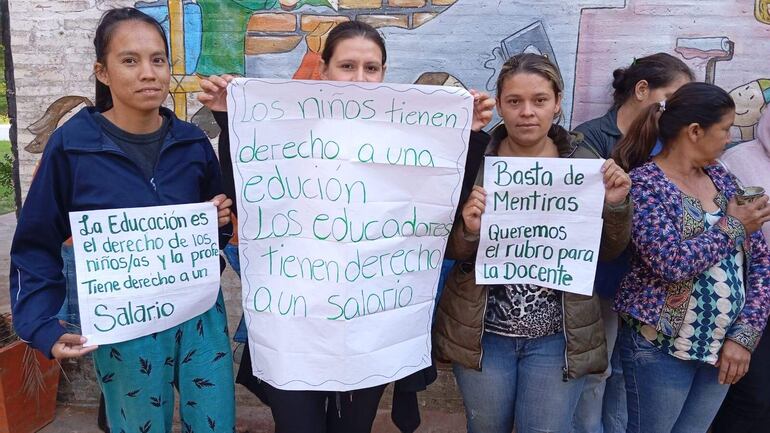 La Educación es
el derecho de los
niños/as y la profe
Tiene derecho a un
Salario
Los niños tienen
derecho a una
edución
Los educadores
tienen derecho
a un salario
Basta de
Mentiras
Queremos
el rubro para
la Docente